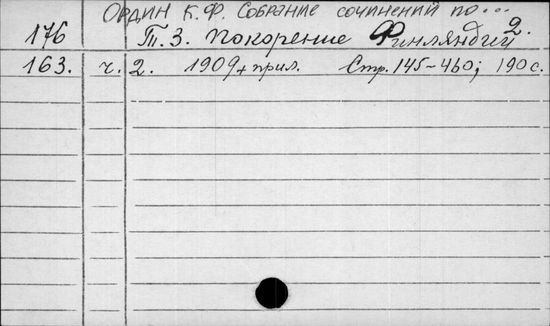 Ордин К.Ф. Собрание сочинений по...
176 Т.3. Покорение Финляндии 2.
163. ч. 2. 1909 + прил. Стр. 145-460; 190 с.